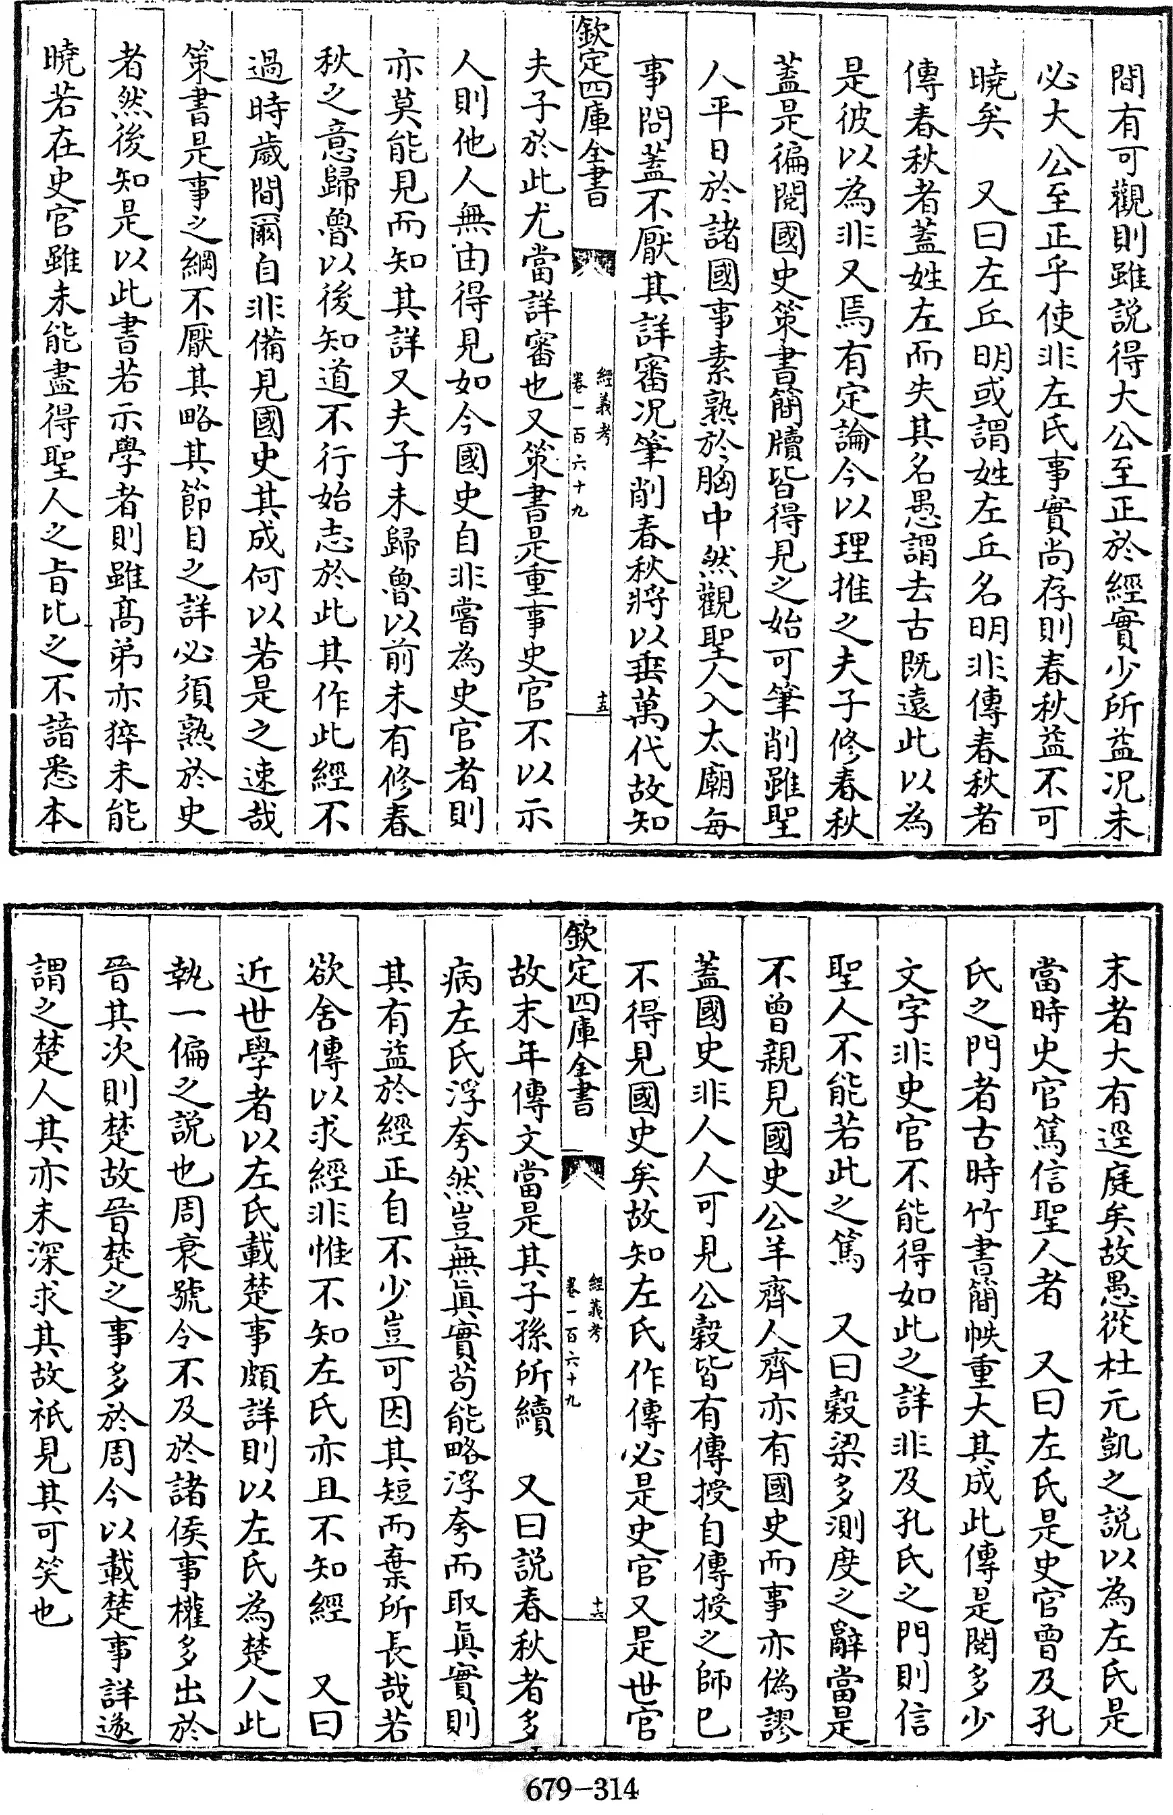 間有可觀則雖說得大公至正於經實少所益况未
必大公至正乎使非左氏事實尚存則春秋益不可
曉矣　又曰左丘明或謂姓左丘名明非傳春秋者
傳春秋者蓋姓左而失其名愚謂去古既遠此以為
是彼以為非又焉有定論今以理推之夫子修春秋
蓋是徧閱國史策書簡牘皆得見之始可筆削雖聖
人平日於諸國事素熟於胸中然觀聖人入太廟每
事問蓋不厭其詳審况筆削春秋將以垂萬代故知
欽定四庫全書
經義考
卷一百六十九
十五
夫子於此尤當詳審也又策書是重事史官不以示
人則他人無由得見如今國史自非嘗為史官者則
亦莫能見而知其詳又夫子未歸魯以前未有修春
秋之意歸魯以後知道不行始志於此其作此經不
過時歲間爾自非備見國史其成何以若是之速哉
策書是事之綱不厭其略其節目之詳必須熟於史
者然後知是以此書若示學者則雖高弟亦猝未能
曉若在史官雖未能盡得聖人之旨比之不諳悉本
末者大有逕庭矣故愚從杜元凱之說以為左氏是
當時史官篤信聖人者　又曰左氏是史官曾及孔
氏之門者古時竹書簡帙重大其成此傳是閱多少
文字非史官不能得如此之詳非及孔氏之門則信
聖人不能若此之篤　又曰穀梁多測度之辭當是
不曾親見國史公羊齊人齊亦有國史而事亦偽謬
蓋國史非人人可見公穀皆有傳授自傳授之師已
不得見國史矣故知左氏作傳必是史官又是世官
欽定四庫全書
經義考
卷一百六十九
十六
故末年傳文當是其子孫所續　又曰說春秋者多
病左氏浮夸然豈無真實苟能略浮夸而取真實則
其有益於經正自不少豈可因其短而棄所長哉若
欲舍傳以求經非惟不知左氏亦且不知經　又曰
近世學者以左氏載楚事頗詳則以左氏為楚人此
執一偏之說也周衰號令不及於諸侯事權多出於
晉其次則楚故晉楚之事多於周今以載楚事詳遂
謂之楚人其亦未深求其故祇見其可笑也
679-314